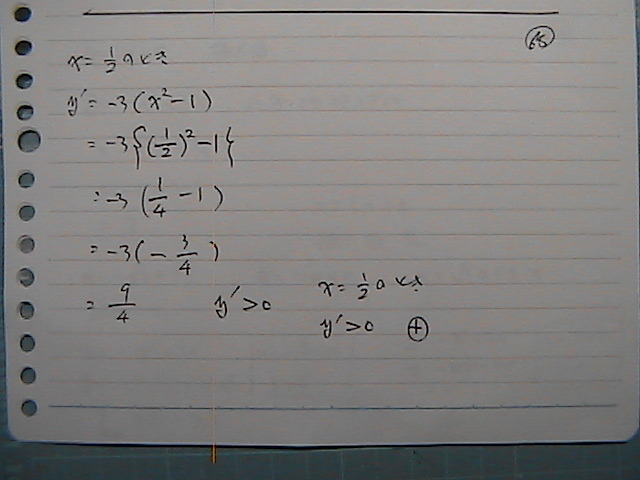 65
x = 1/2 のとき
y' = -3(x² - 1)
= -3{(1/2)² - 1}
= -3(1/4 - 1)
= -3(-3/4)
= 9/4 y' > 0
x = 1/2 のとき
y' > 0 ⊕